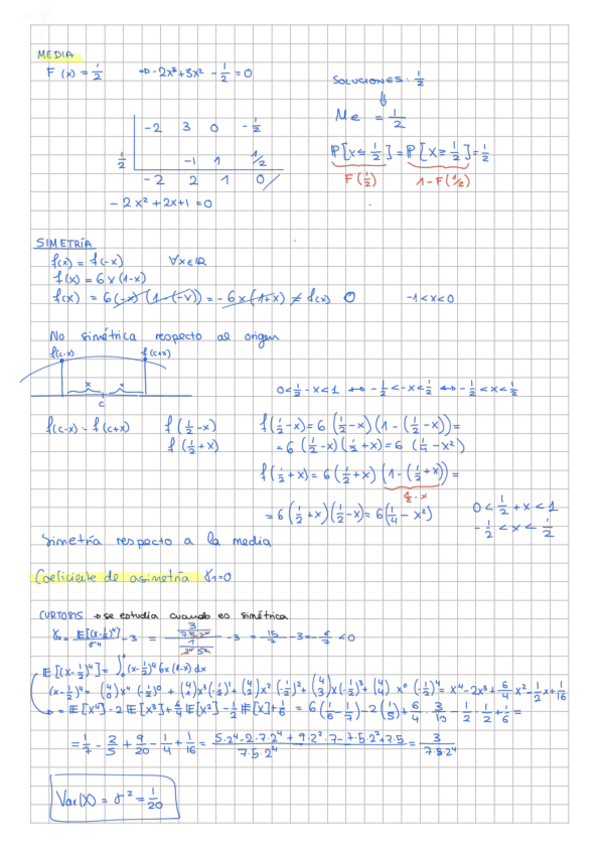 MEDIA
F(x) = 1/2 => -2x³+3x² - 1/2 = 0
SOLUCIONES: 1/2
⇓
Me = 1/2
-2 3 0 -1/2
1/2 -1 1 1/2
-2 2 1 0
-2x²+2x+1=0
P[X≤1/2] = P[X≥1/2] = 1/2
F(1/2) 1-F(1/2)
SIMETRÍA
f(x) = f(-x) ∀x∈ℝ
f(x) = 6x(1-x)
f(x) = 6(-x)(1-(-x)) = -6x(1+x) ≠ f(x) 0 -1<x<0
No simétrica respecto al origen
f(c-x) f(c+x)
x x
c
0<1/2-x<1 ↔ -1/2<-x<1/2 ↔ -1/2<x<1/2
f(c-x) - f(c+x) f(1/2-x) f(1/2-x) = 6(1/2-x)(1-(1/2-x)) =
f(1/2+x) = 6(1/2-x)(1/2+x) = 6(1/4-x²)
f(1/2+x) = 6(1/2+x)(1-(1/2+x)) =
1/2-x
= 6(1/2+x)(1/2-x) = 6(1/4-x²)
0<1/2+x<1
-1/2<x<1/2
Simetría respecto a la media
Coeficiente de asimetría γ1=0
CURTOSIS → se estudia cuando es simétrica
E[(x-1/2)⁴]/σ⁴ - 3 = -3 = 15/7 - 3 = -6/7 < 0
E[(x-1/2)⁴] = ∫₀¹ (x-1/2)⁴ 6x(1-x) dx
(x-1/2)⁴ = (4 0)x⁴(-1/2)⁰ + (4 1)x³(-1/2)¹ + (4 2)x²(-1/2)² + (4 3)x(-1/2)³ + (4 4)x⁰(-1/2)⁴ = x⁴-2x³+6/4x²-1/2x+1/16
= E[X⁴]-2E[X³]+6/4E[X²]-1/2E[X]+1/16 = 6(1/6-1/7)-2(1/5)+6/4·3/10-1/2·1/2+1/16 =
= 1/7 - 2/5 + 9/20 - 1/4 + 1/16 = (5·2⁴-2·7·2⁴+9·2²·7-7·5·2²+7·5)/(7·5·2⁴) = 3/(7·5·2⁴)
Var(X) = σ² = 1/20